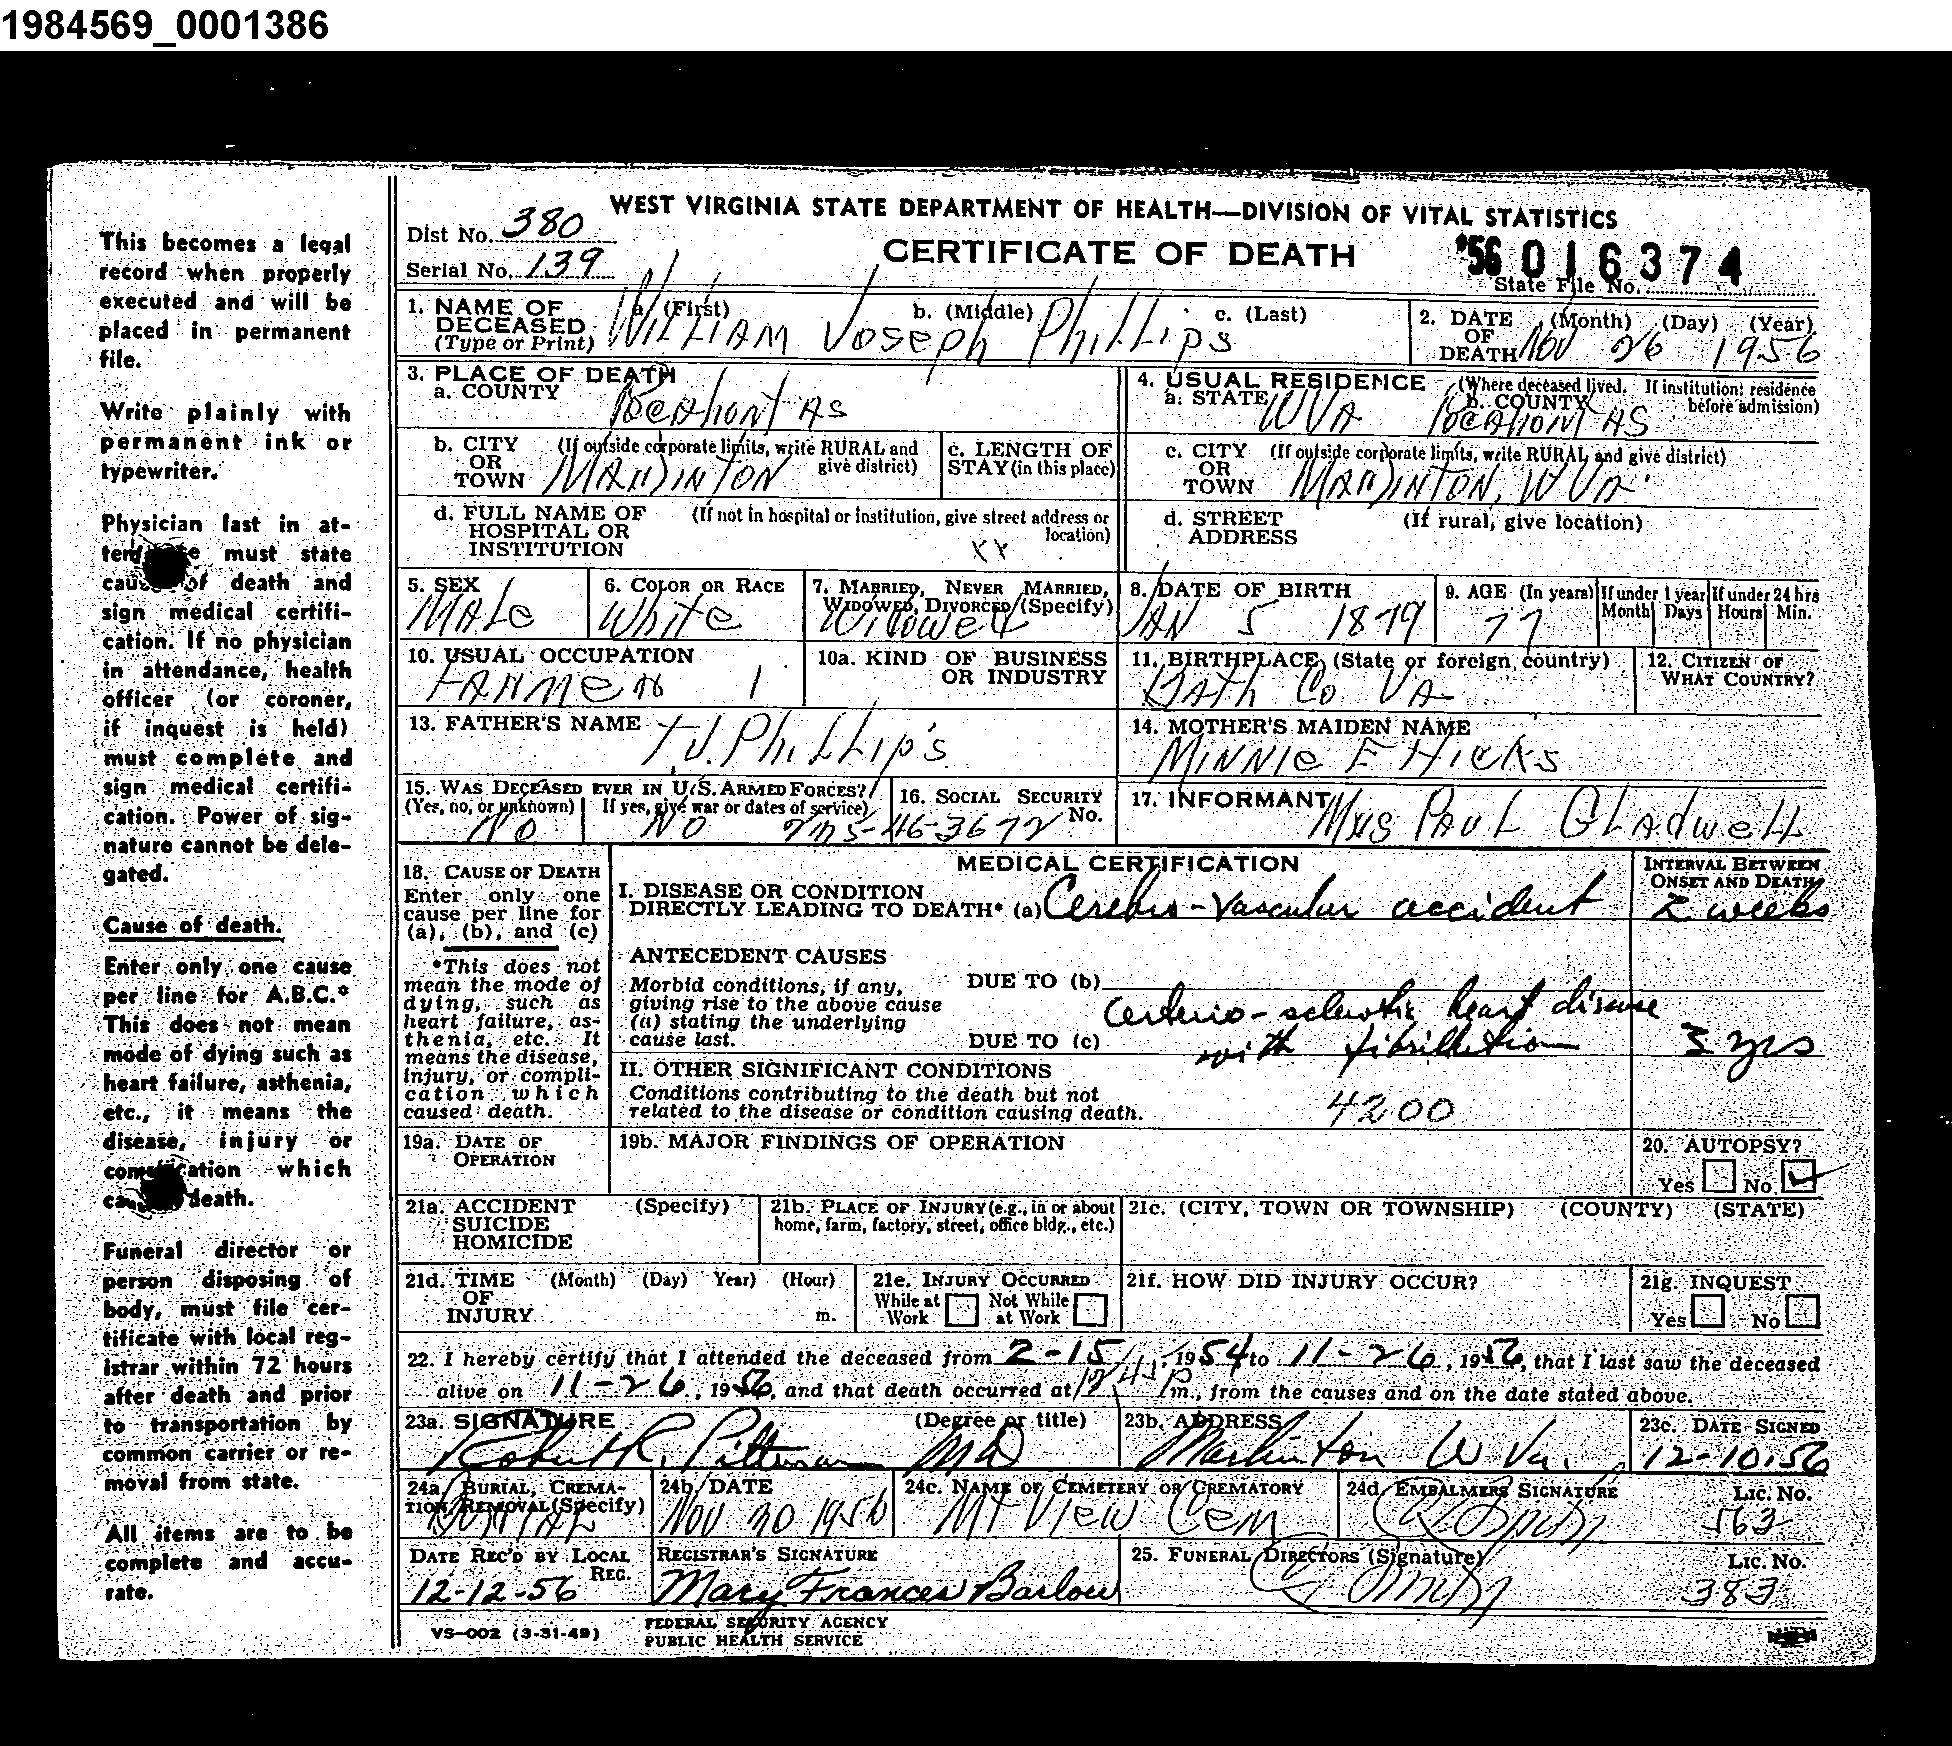 1984569_0001386
This becomes a legal
record when properly
executed and will be
placed in permanent
file.
Write plainly with
permanent ink or
typewriter.
Physician last in at-
must state
of death and
sign medical certifi-
cation. If no physician
in attendance, health
officer (or coroner,
if inquest is held)
must complete and
sign medical certifi-
cation. Power of sig-
nature cannot be dele-
gated.
Cause of death.
Enter only one cause
per line for A.B.C.*
This does not mean
mode of dying such as
heart failure, asthenia,
etc., it means the
disease, injury or
which
death.
Funeral director or
person disposing of
body, must file cer-
tificate with local reg-
istrar within 72 hours
after death and prior
to transportation by
common carrier or re-
moval from state.
All items are to be
complete and accu-
rate.
WEST VIRGINIA STATE DEPARTMENT OF HEALTH—DIVISION OF VITAL STATISTICS
Dist No. 380
CERTIFICATE OF DEATH
Serial No. 139
'56 016374
State File No.
1. NAME OF DECEASED (Type or Print) a. (First) b. (Middle) c. (Last)
William Joseph Phillips
2. DATE OF DEATH (Month) (Day) (Year)
Nov 26 1956
3. PLACE OF DEATH
a. COUNTY
Pocahontas
4. USUAL RESIDENCE (Where deceased lived. If institution: residence before admission)
a. STATE WVA b. COUNTY Pocahontas
b. CITY OR TOWN (If outside corporate limits, write RURAL and give district)
Marlinton
c. LENGTH OF STAY (in this place)
c. CITY OR TOWN (If outside corporate limits, write RURAL and give district)
Marlinton, WVA
d. FULL NAME OF HOSPITAL OR INSTITUTION (If not in hospital or institution, give street address or location)
XX
d. STREET ADDRESS (If rural, give location)
5. SEX
Male
6. COLOR OR RACE
White
7. MARRIED, NEVER MARRIED, WIDOWED, DIVORCED (Specify)
Widowed
8. DATE OF BIRTH
Jan 5 1879
9. AGE (In years) If under 1 year Month Days If under 24 hrs Hours Min.
77
10. USUAL OCCUPATION
Farmer 1
10a. KIND OF BUSINESS OR INDUSTRY
11. BIRTHPLACE (State or foreign country)
Bath Co VA
12. CITIZEN OF WHAT COUNTRY?
13. FATHER'S NAME
T.J. Phillips
14. MOTHER'S MAIDEN NAME
Minnie E Hicks
15. WAS DECEASED EVER IN U.S. ARMED FORCES?
(Yes, no, or unknown) If yes, give war or dates of service)
No No
16. SOCIAL SECURITY No.
46-3672
17. INFORMANT
Mrs Paul Gladwell
18. CAUSE OF DEATH
Enter only one
cause per line for
(a), (b), and (c)
*This does not
mean the mode of
dying, such as
heart failure, as-
thenia, etc. It
means the disease,
injury, or compli-
cation which
caused death.
MEDICAL CERTIFICATION
INTERVAL BETWEEN ONSET AND DEATH
I. DISEASE OR CONDITION
DIRECTLY LEADING TO DEATH* (a) Cerebro-Vascular accident 2 weeks
ANTECEDENT CAUSES
Morbid conditions, if any,
giving rise to the above cause
(a) stating the underlying
cause last.
DUE TO (b)
arterio-sclerotic heart disease
DUE TO (c)
with fibrillation 3 yrs
II. OTHER SIGNIFICANT CONDITIONS
Conditions contributing to the death but not
related to the disease or condition causing death.
4200
19a. DATE OF OPERATION
19b. MAJOR FINDINGS OF OPERATION
20. AUTOPSY?
Yes No ✓
21a. ACCIDENT SUICIDE HOMICIDE (Specify)
21b. PLACE OF INJURY (e.g., in or about home, farm, factory, street, office bldg., etc.)
21c. (CITY, TOWN OR TOWNSHIP) (COUNTY) (STATE)
21d. TIME OF INJURY (Month) (Day) Year) (Hour) m.
21e. INJURY OCCURRED
While at Work Not While at Work
21f. HOW DID INJURY OCCUR?
21g. INQUEST
Yes No
22. I hereby certify that I attended the deceased from 2-15, 1954 to 11-26, 1956, that I last saw the deceased
alive on 11-26, 1956, and that death occurred at m., from the causes and on the date stated above.
23a. SIGNATURE (Degree or title)
Robert R. Pittman MD
23b. ADDRESS
Marlinton W Va.
23c. DATE SIGNED
12-10-56
24a. BURIAL, CREMATION REMOVAL (Specify)
Burial
24b. DATE
Nov 30 1956
24c. NAME OF CEMETERY OR CREMATORY
Mt View Cem
24d. EMBALMERS SIGNATURE LIC. NO.
563
DATE REC'D BY LOCAL REG.
12-12-56
REGISTRAR'S SIGNATURE
Mary Frances Barlow
25. FUNERAL DIRECTORS (Signature) LIC. NO.
383
VS-002 (3-31-49)
FEDERAL SECURITY AGENCY
PUBLIC HEALTH SERVICE